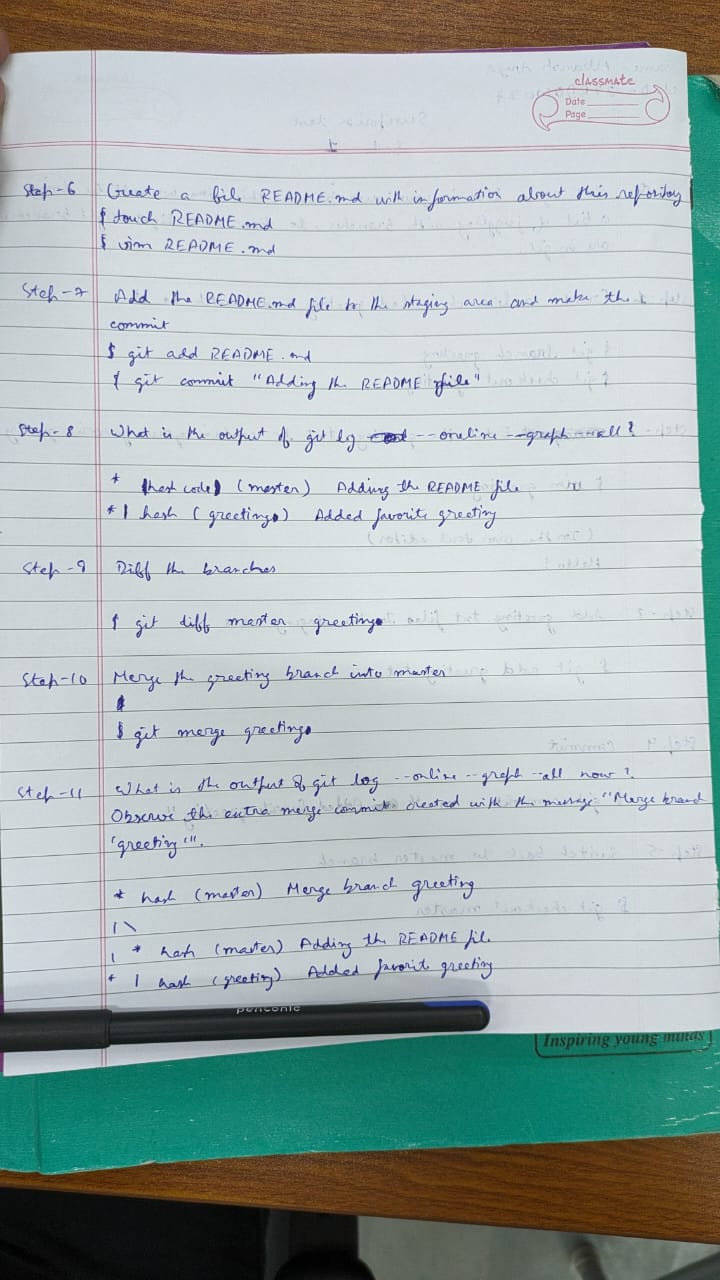 classmate
Date
Page
Step-6 Create a file README.md with information about this repository
$ touch README.md
$ vim README.md
Step-7 Add the README.md file to the staging area and make the
commit
$ git add README.md
$ git commit "Adding the README file"
Step-8 What is the output of git log --oneline --graph --all?
* hash code (master) Adding the README file
* | hash (greeting) Added favorite greeting
Step-9 Diff the branches
$ git diff master greeting
Step-10 Merge the greeting branch into master
$
$ git merge greeting
Step-11 What is the output of git log --online --graph --all now?
Observe the extra merge commit created with the message "Merge branch
'greeting'".
* hash (master) Merge branch greeting
|\
| * hash (master) Adding the README file
* | hash (greeting) Added favorit greeting
penconic
Inspiring young minds